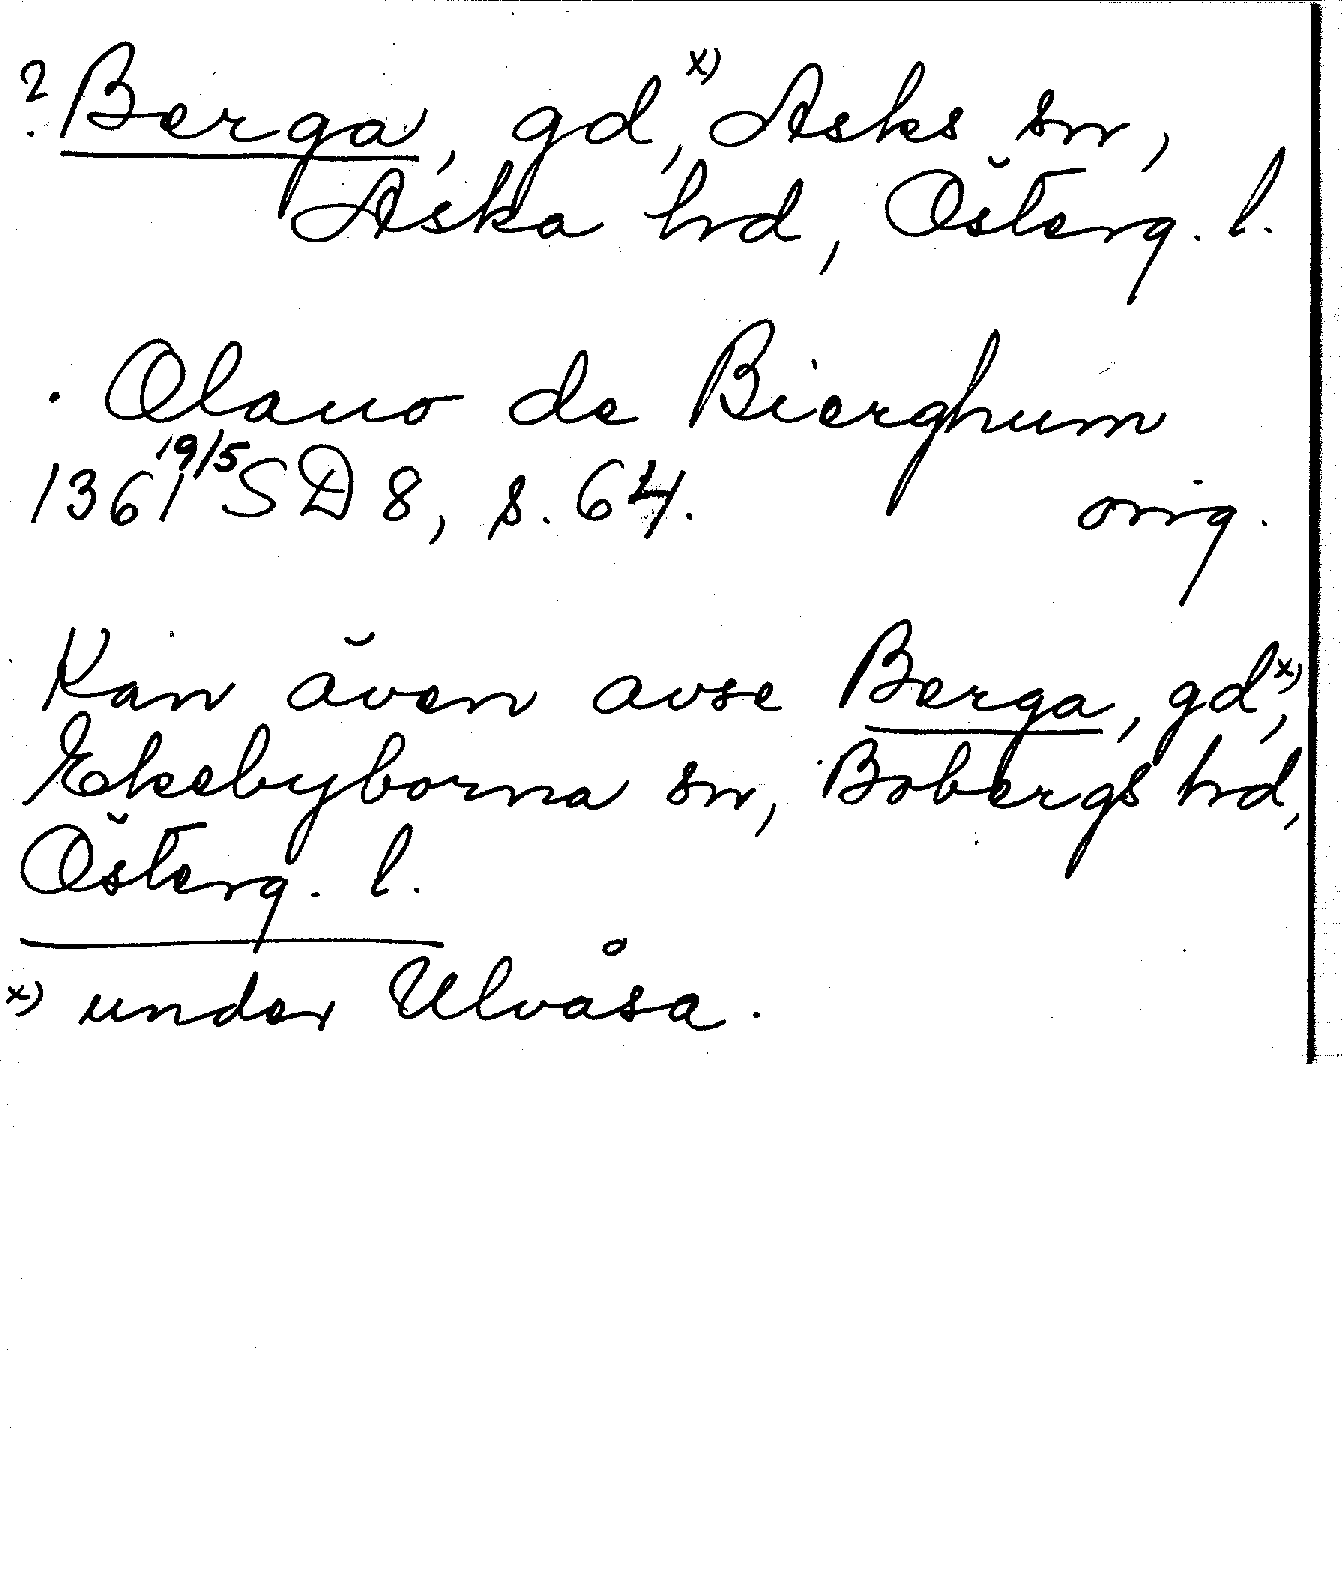 ? Berga, gd x), Asks sn,
Aska hd, Österg. l.
. Olauo de Bierghum
1361 19/5 SD 8, s. 64. orig.
Kan även avse Berga, gd x),
Ekebyborna sn, Bobergs hd,
Österg. l.
x) under Ulvåsa.